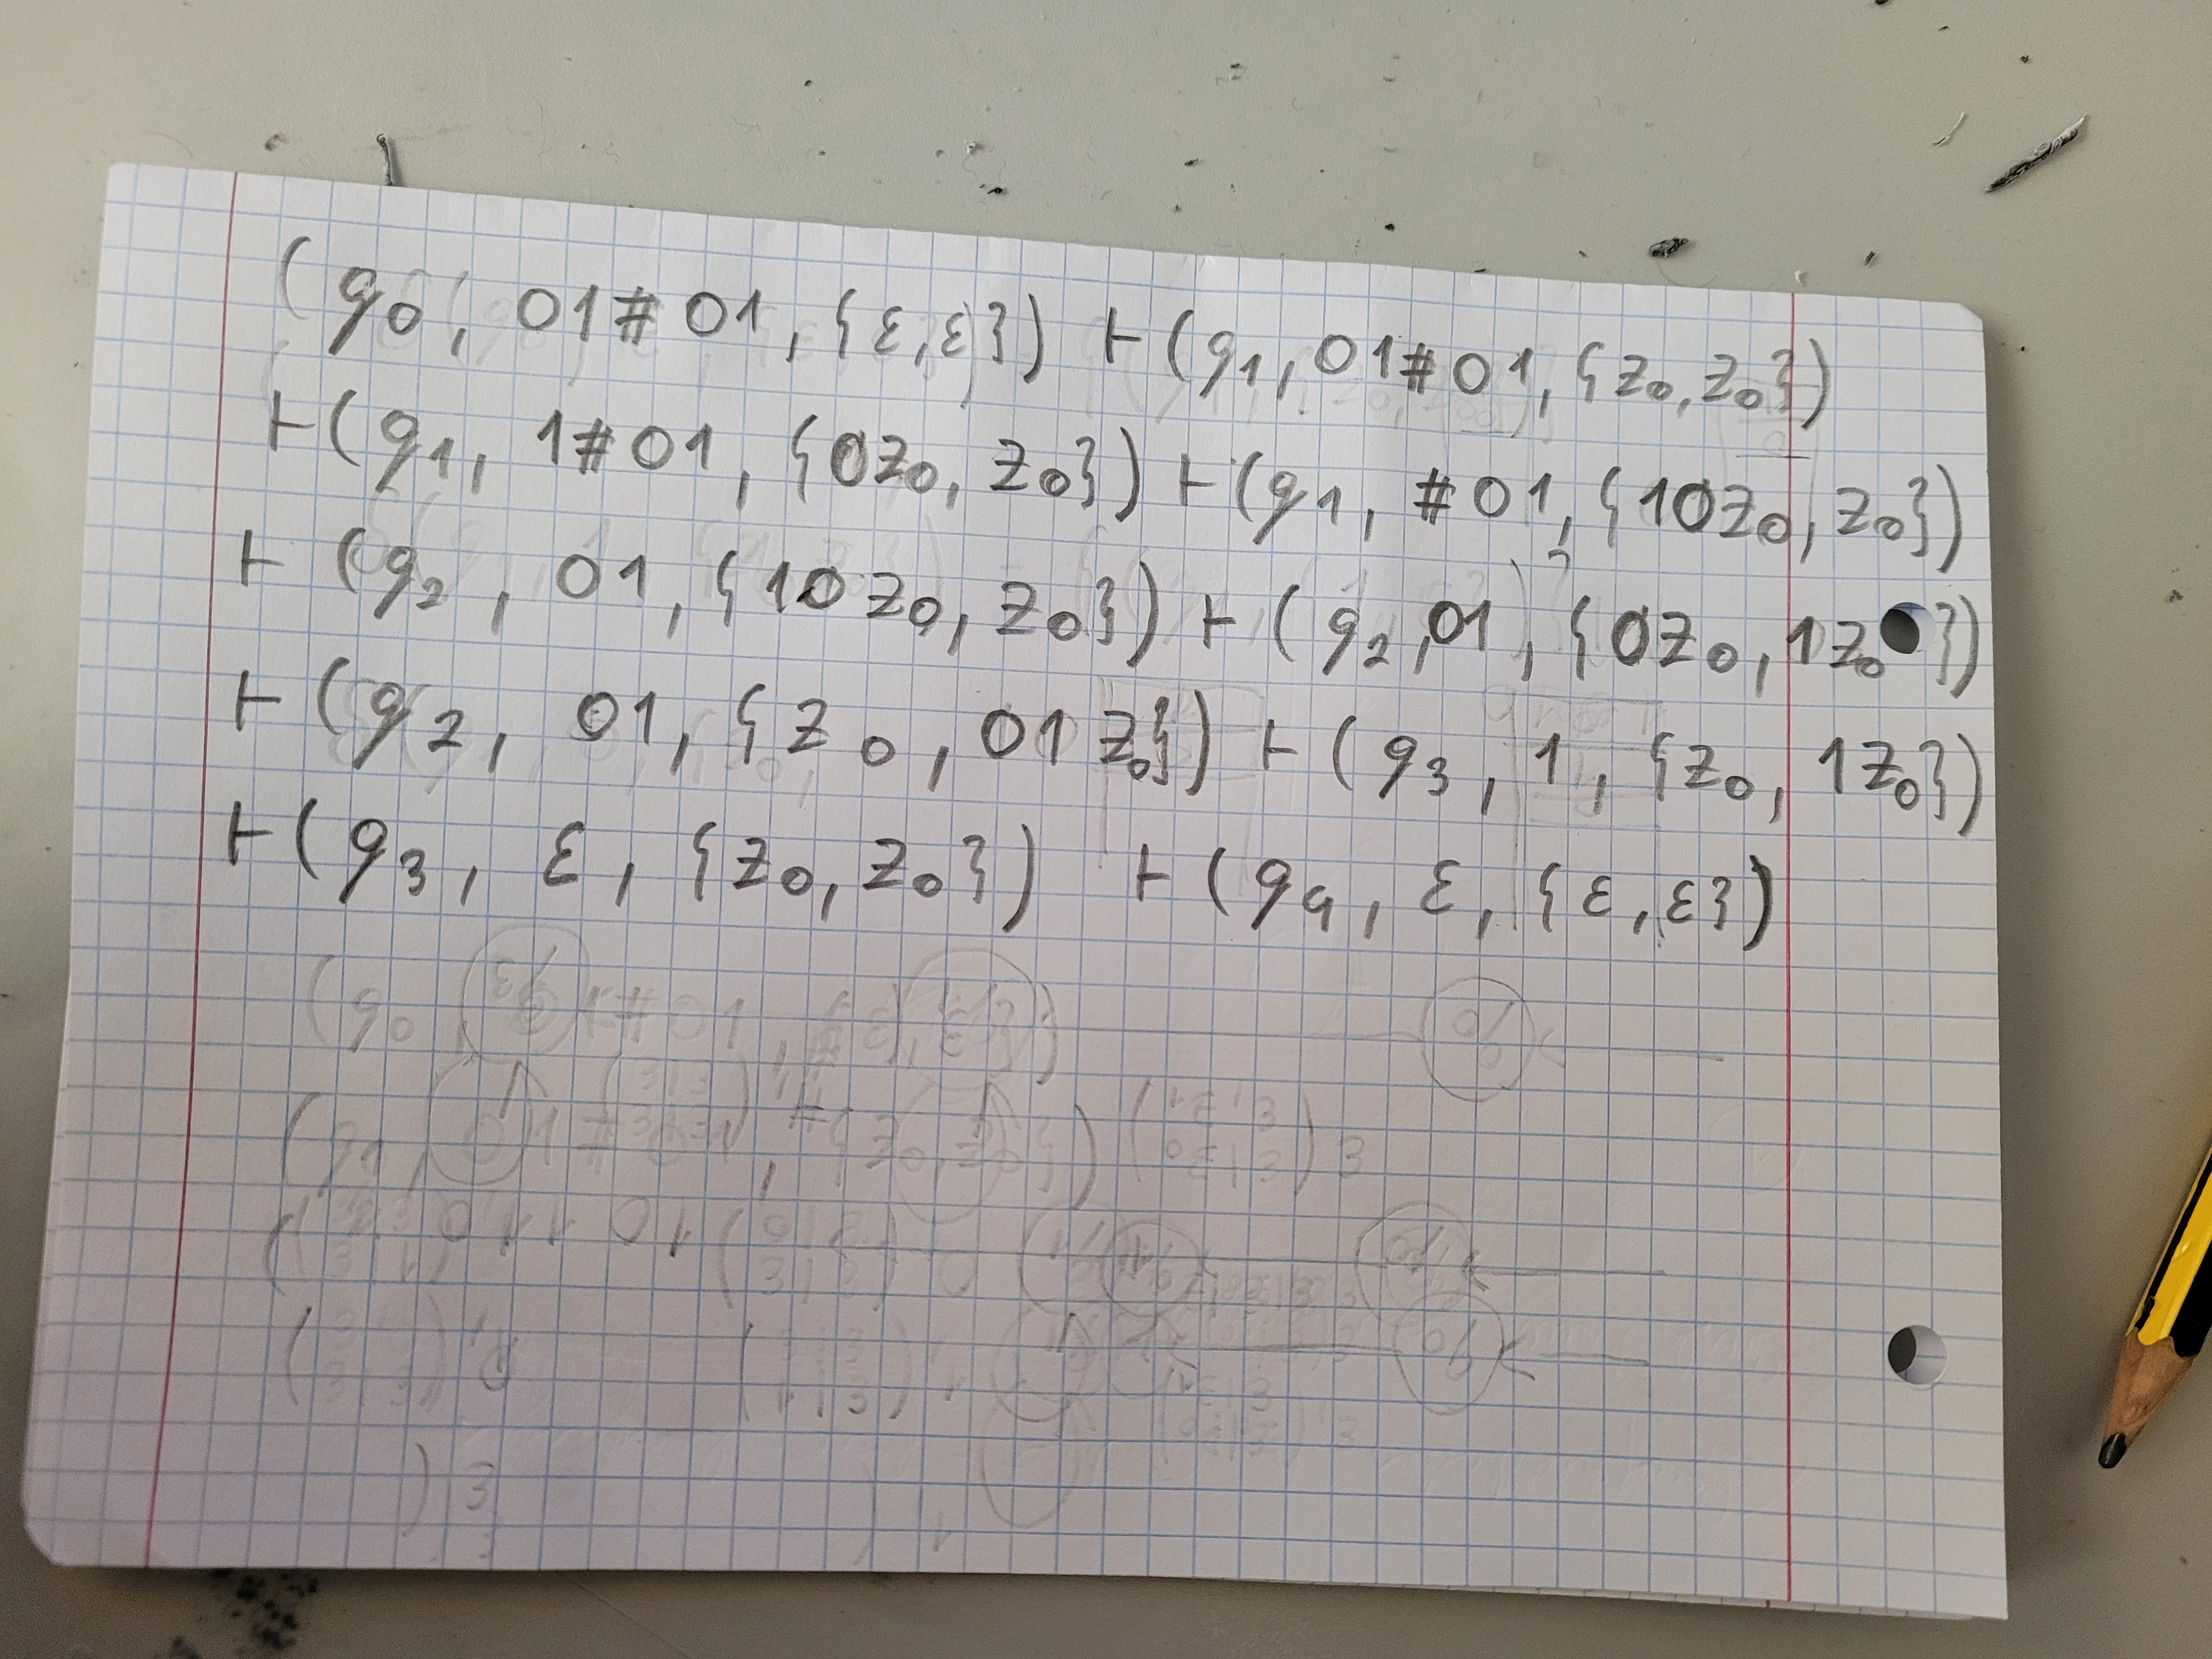 (q0, 01#01, {ε,ε}) ⊢ (q1, 01#01, {z0, z0})
⊢ (q1, 1#01, {0z0, z0}) ⊢ (q1, #01, {10z0, z0})
⊢ (q2, 01, {10z0, z0}) ⊢ (q2, 01, {0z0, 1z0})
⊢ (q2, 01, {z0, 01z0}) ⊢ (q3, 1, {z0, 1z0})
⊢ (q3, ε, {z0, z0}) ⊢ (q4, ε, {ε, ε})